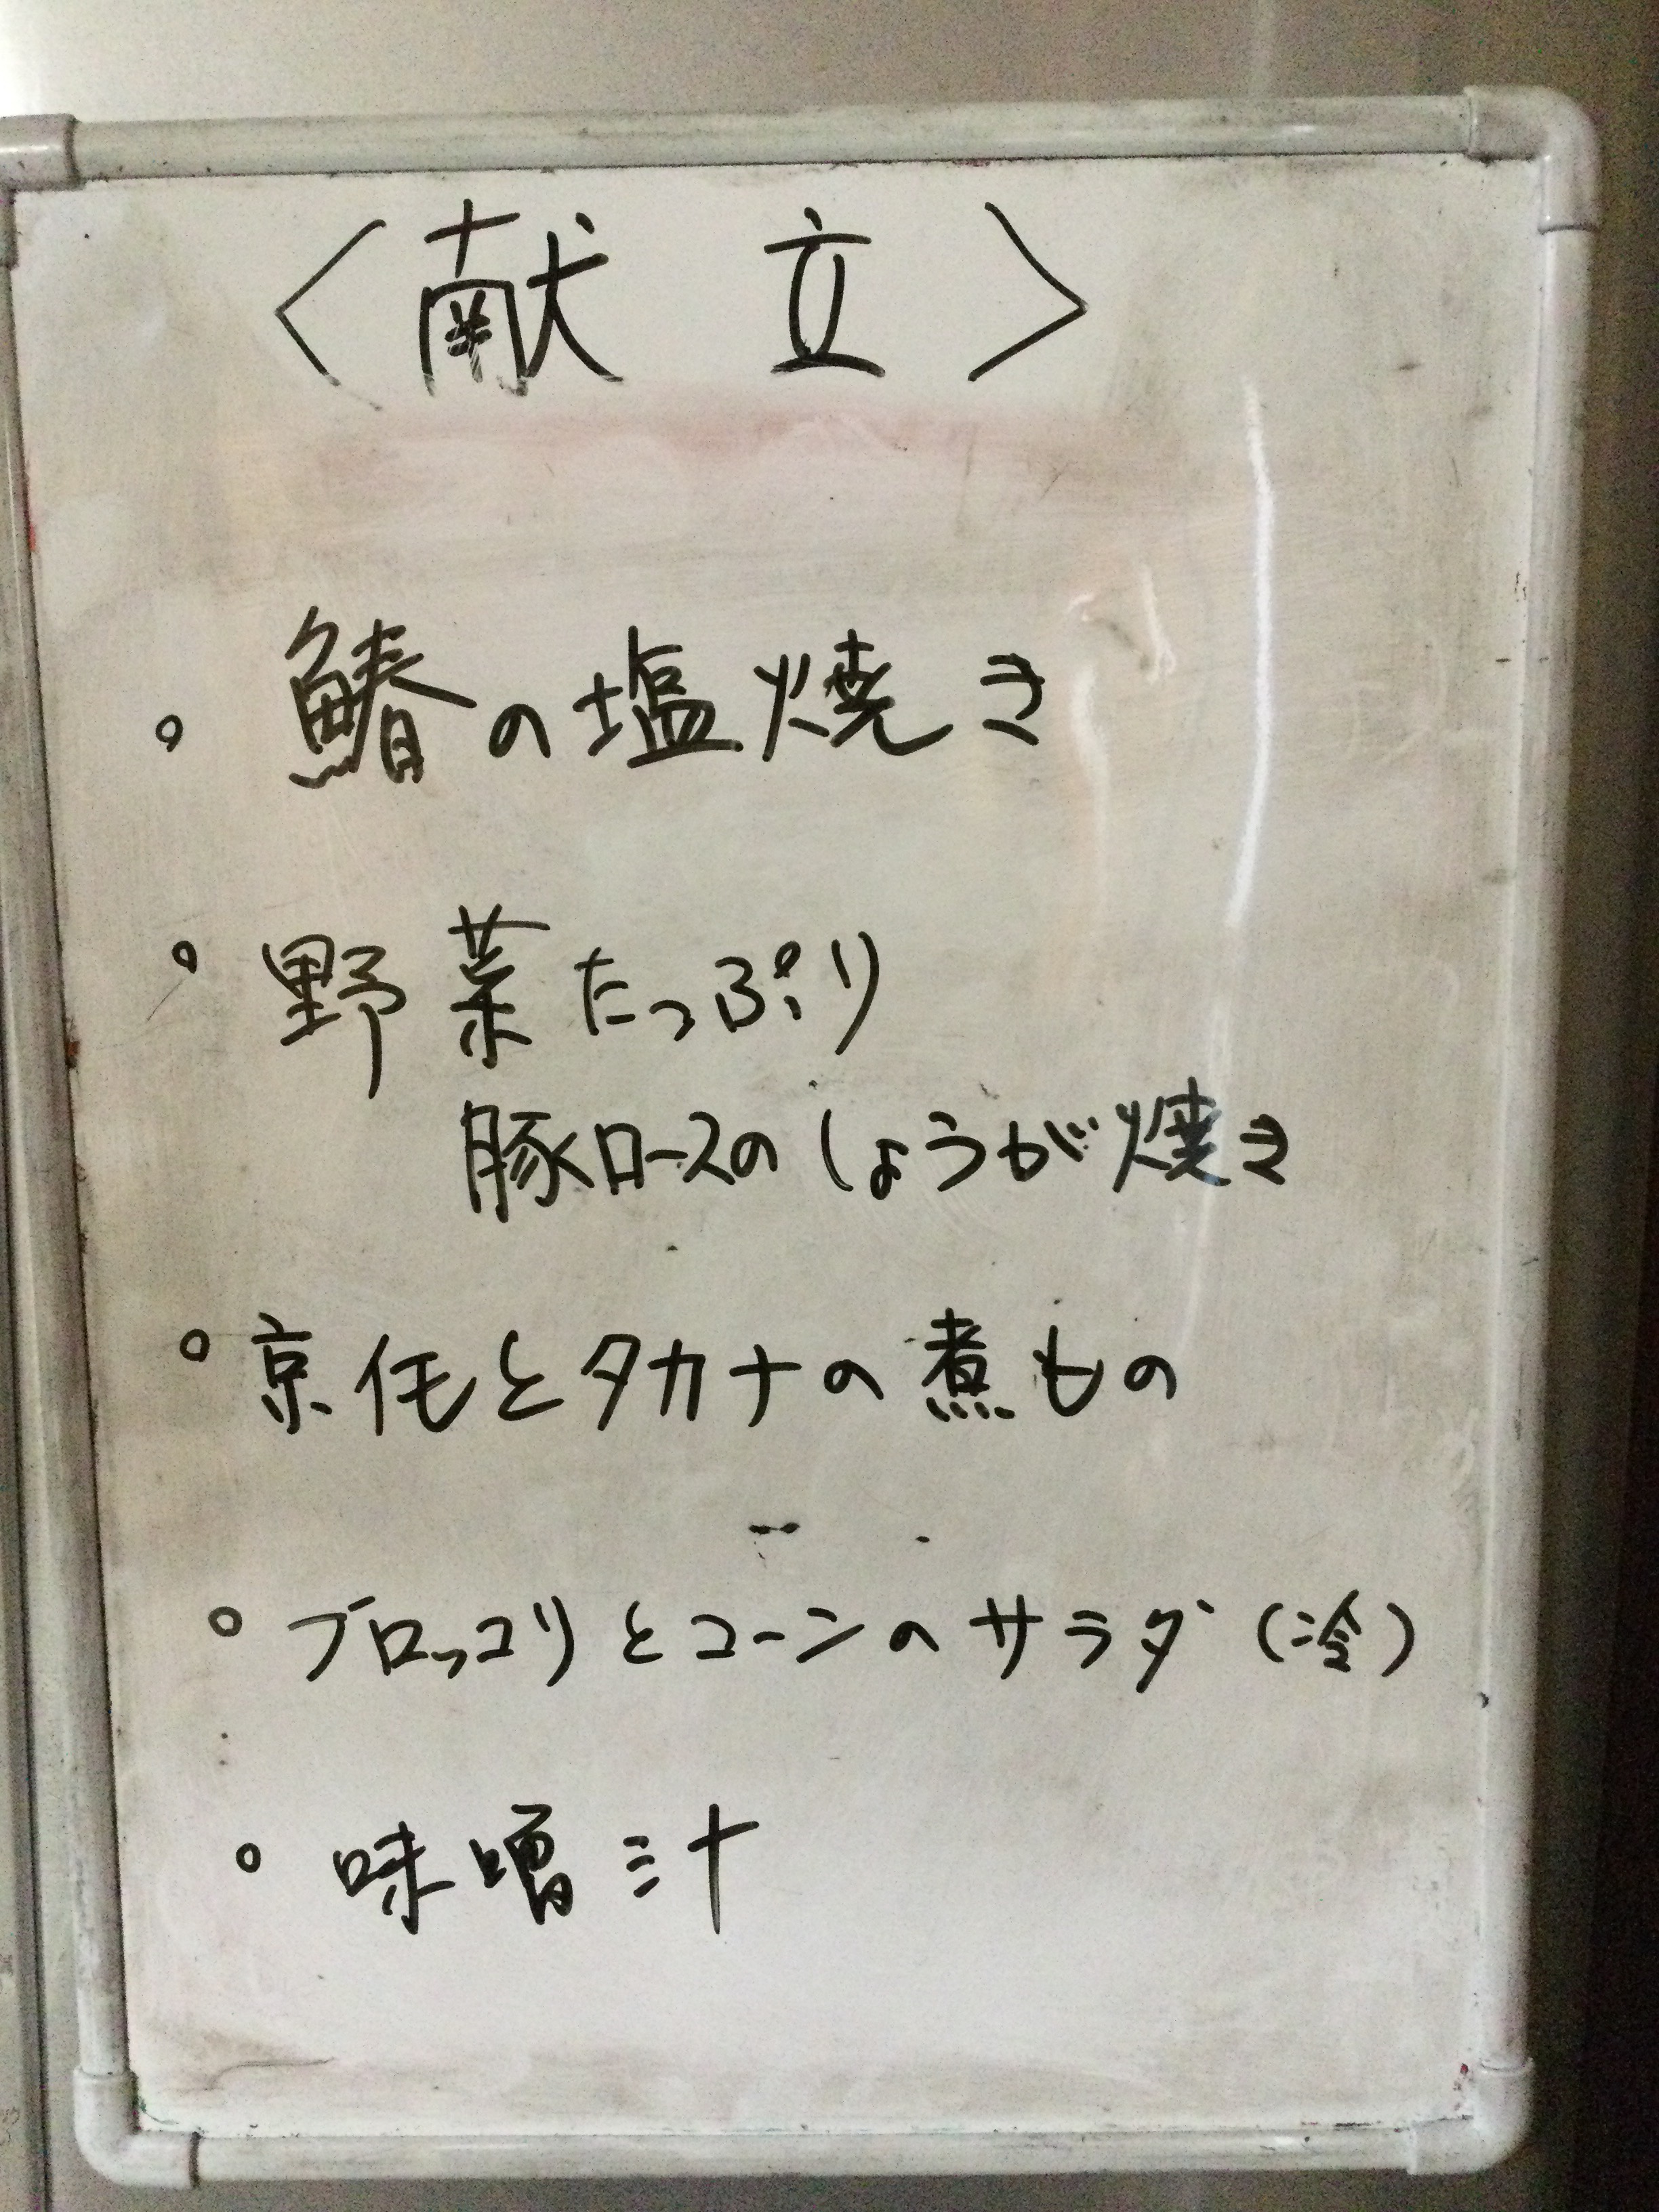 <献立>
。鰆の塩焼き
。野菜たっぷり
豚ロースのしょうが焼き
。京任とタカナの煮もの
。ブロッコリとコーンのサラダ(冷)
。味噌汁